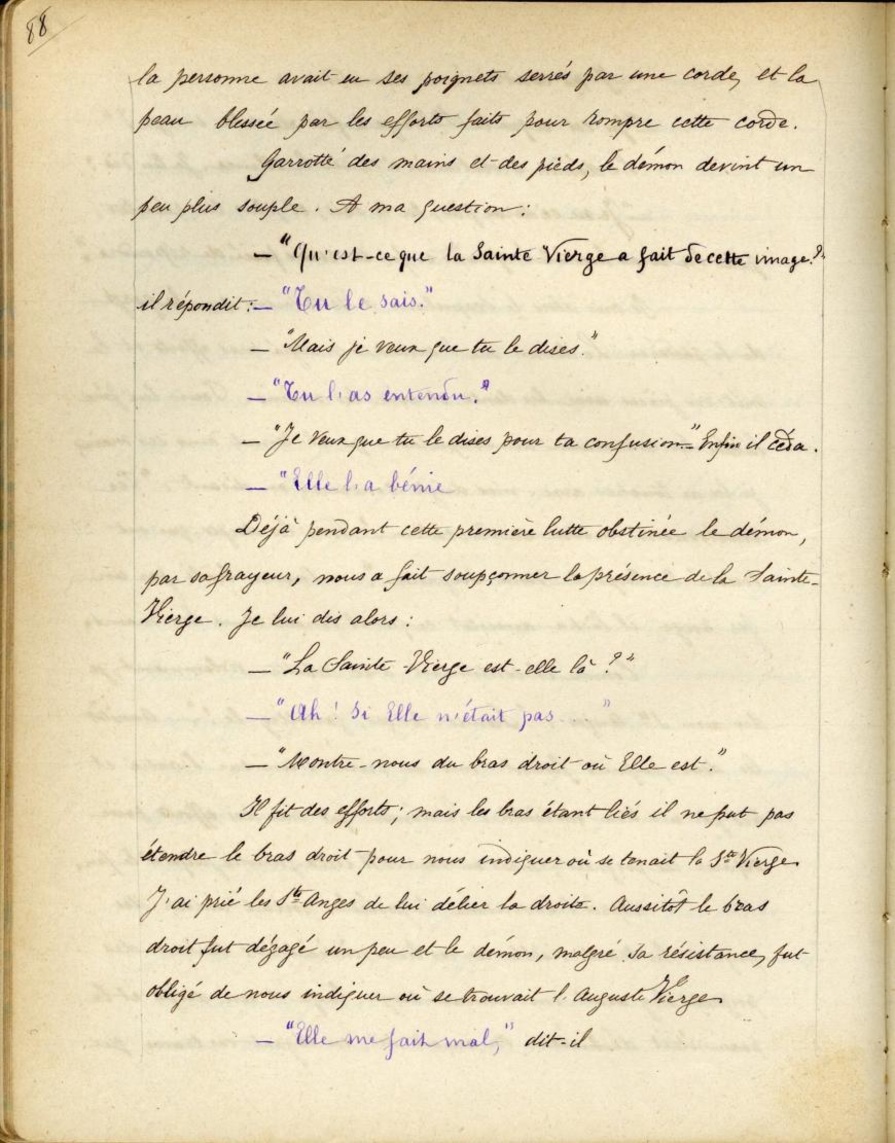 88
la personne avait eu ses poignets serrés par une corde, et la
peau blessée par les efforts faits pour rompre cette corde.
Garrotté des mains et des pieds, le démon devint un
peu plus souple. A ma question :
— "Qu'est-ce que la Sainte Vierge a fait de cette image ?"
il répondit : — "Tu le sais."
— "Mais je veux que tu le dises."
— "Tu l'as entendu."
— "Je veux que tu le dises pour ta confusion." — Enfin il céda.
— "Elle l'a bénie
Déjà pendant cette première lutte obstinée le démon,
par sa frayeur, nous a fait soupçonner la présence de la Sainte-
Vierge. Je lui dis alors :
— "La Sainte Vierge est-elle là ?"
— "Ah ! Si Elle n'était pas..."
— "Montre-nous du bras droit où Elle est."
Il fit des efforts ; mais les bras étant liés il ne put pas
étendre le bras droit pour nous indiquer où se tenait la Ste Vierge.
J'ai prié les Sts Anges de lui délier la droite. Aussitôt le bras
droit fut dégagé un peu et le démon, malgré sa résistance, fut
obligé de nous indiquer où se trouvait l'Auguste Vierge.
— "Elle me fait mal," dit-il